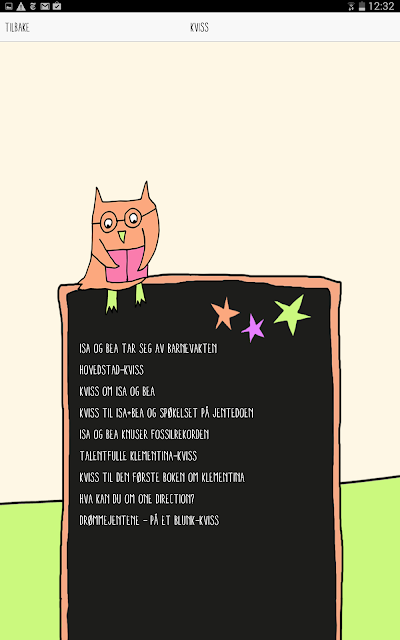 12:32
TILBAKE
KVISS
ISA OG BEA TAR SEG AV BARNEVAKTEN
HOVEDSTAD-KVISS
KVISS OM ISA OG BEA
KVISS TIL ISA+BEA OG SPØKELSET PÅ JENTEDOEN
ISA OG BEA KNUSER FOSSILREKORDEN
TALENTFULLE KLEMENTINA-KVISS
KVISS TIL DEN FØRSTE BOKEN OM KLEMENTINA
HVA KAN DU OM ONE DIRECTION?
DRØMMEJENTENE - PÅ ET BLUNK-KVISS